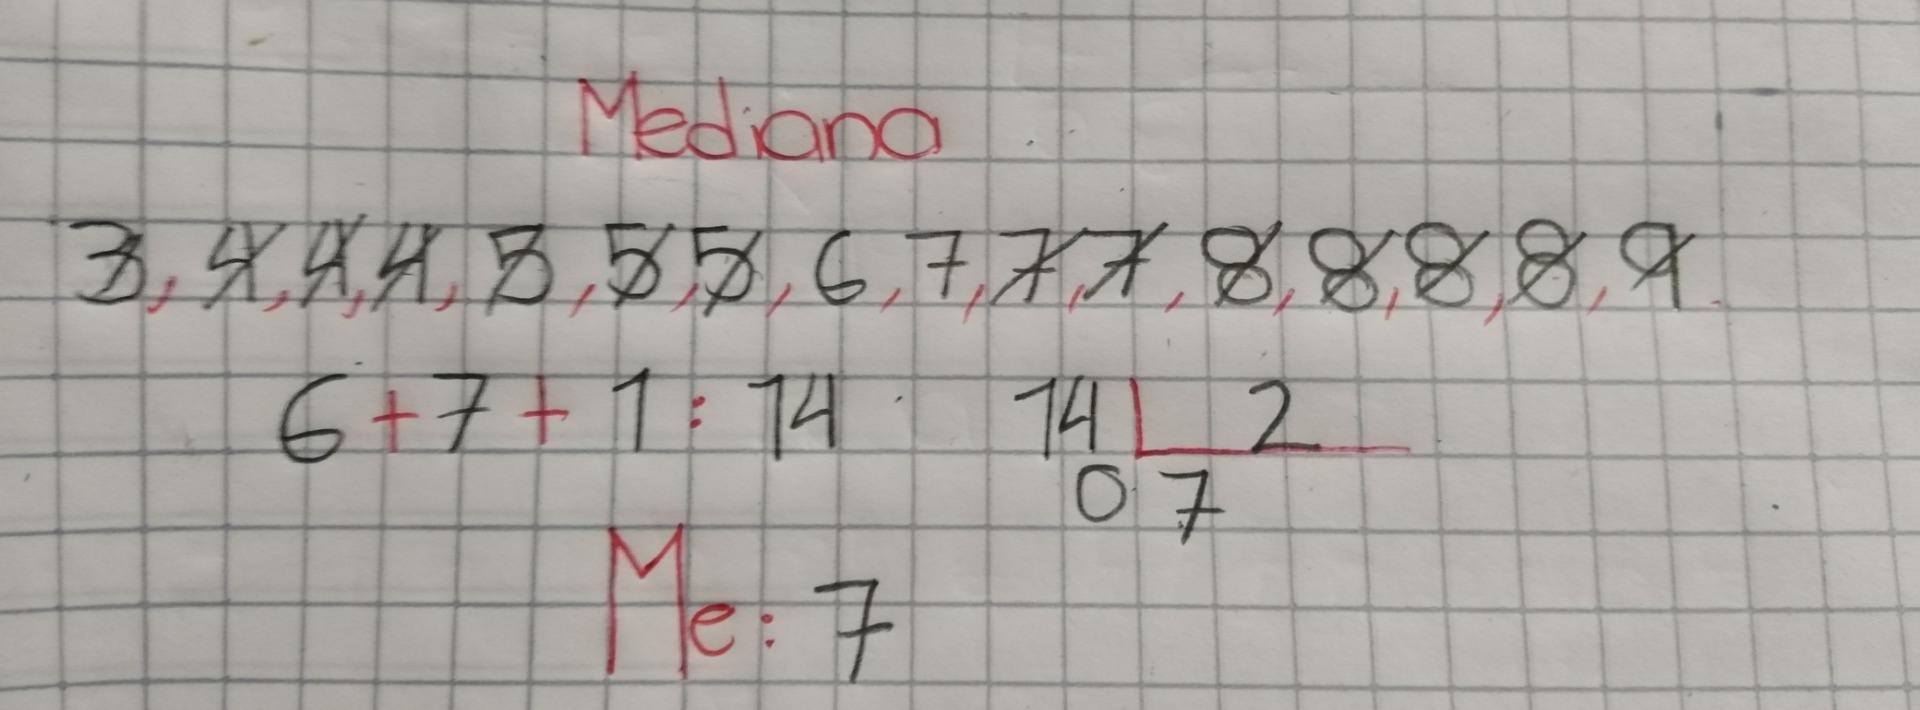 Mediana
3, 4, 4, 4, 5, 5, 5, 6, 7, 7, 7, 8, 8, 8, 8, 9.
6 + 7 + 1 : 14 14 2
0 7
Me: 7